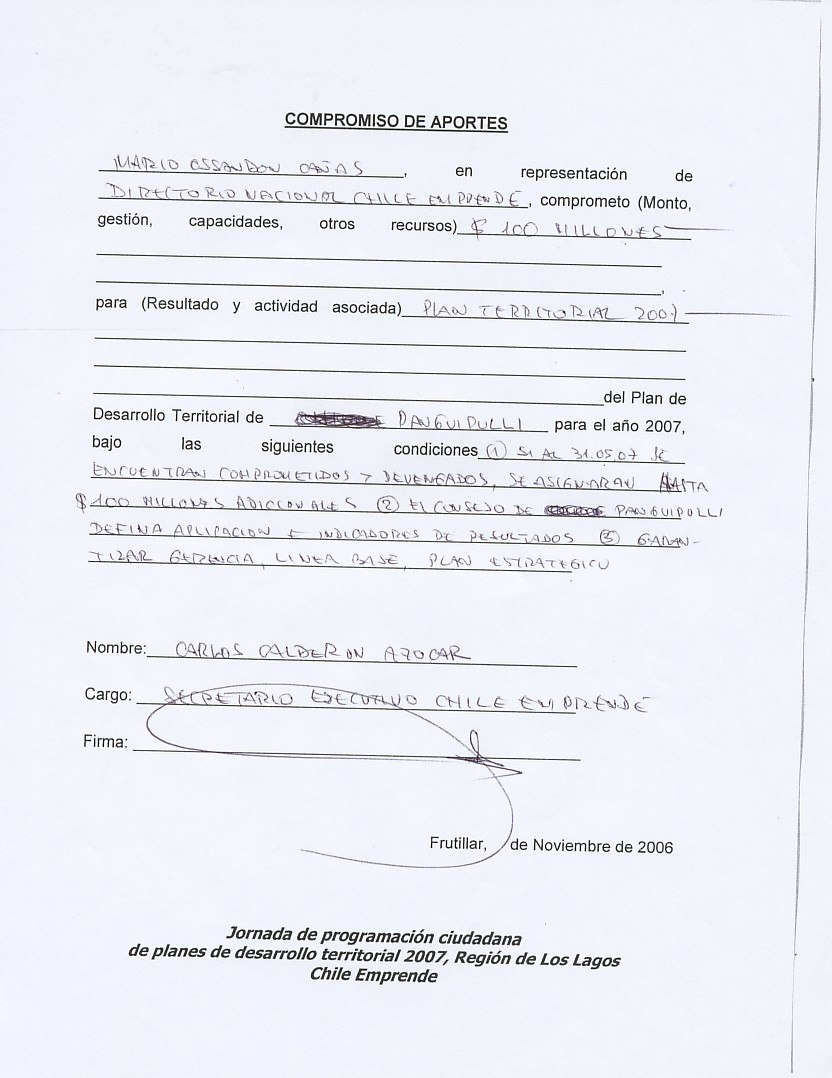 COMPROMISO DE APORTES
MARIO OSSANDON CAÑAS, en representación de
DIRECTORIO NACIONAL CHILE EMPRENDE, comprometo (Monto,
gestión, capacidades, otros recursos) $ 100 MILLONES
,
para (Resultado y actividad asociada) PLAN TERRITORIAL 2007
del Plan de
Desarrollo Territorial de PANGUIPULLI para el año 2007,
bajo las siguientes condiciones (1) SI AL 31.05.07 SE
ENCUENTRAN COMPROMETIDOS Y DEVENGADOS, SE ASIGNARAN HASTA
$100 MILLONES ADICIONALES (2) EL CONSEJO DE PANGUIPULLI
DEFINA APLICACION E INDICADORES DE RESULTADOS (3) GARAN-
TIZAR GERENCIA, LINEA BASE, PLAN ESTRATEGICO
Nombre: CARLOS CALDERON AZOCAR
Cargo: SECRETARIO EJECUTIVO CHILE EMPRENDE
Firma:
Frutillar, de Noviembre de 2006
Jornada de programación ciudadana
de planes de desarrollo territorial 2007, Región de Los Lagos
Chile Emprende